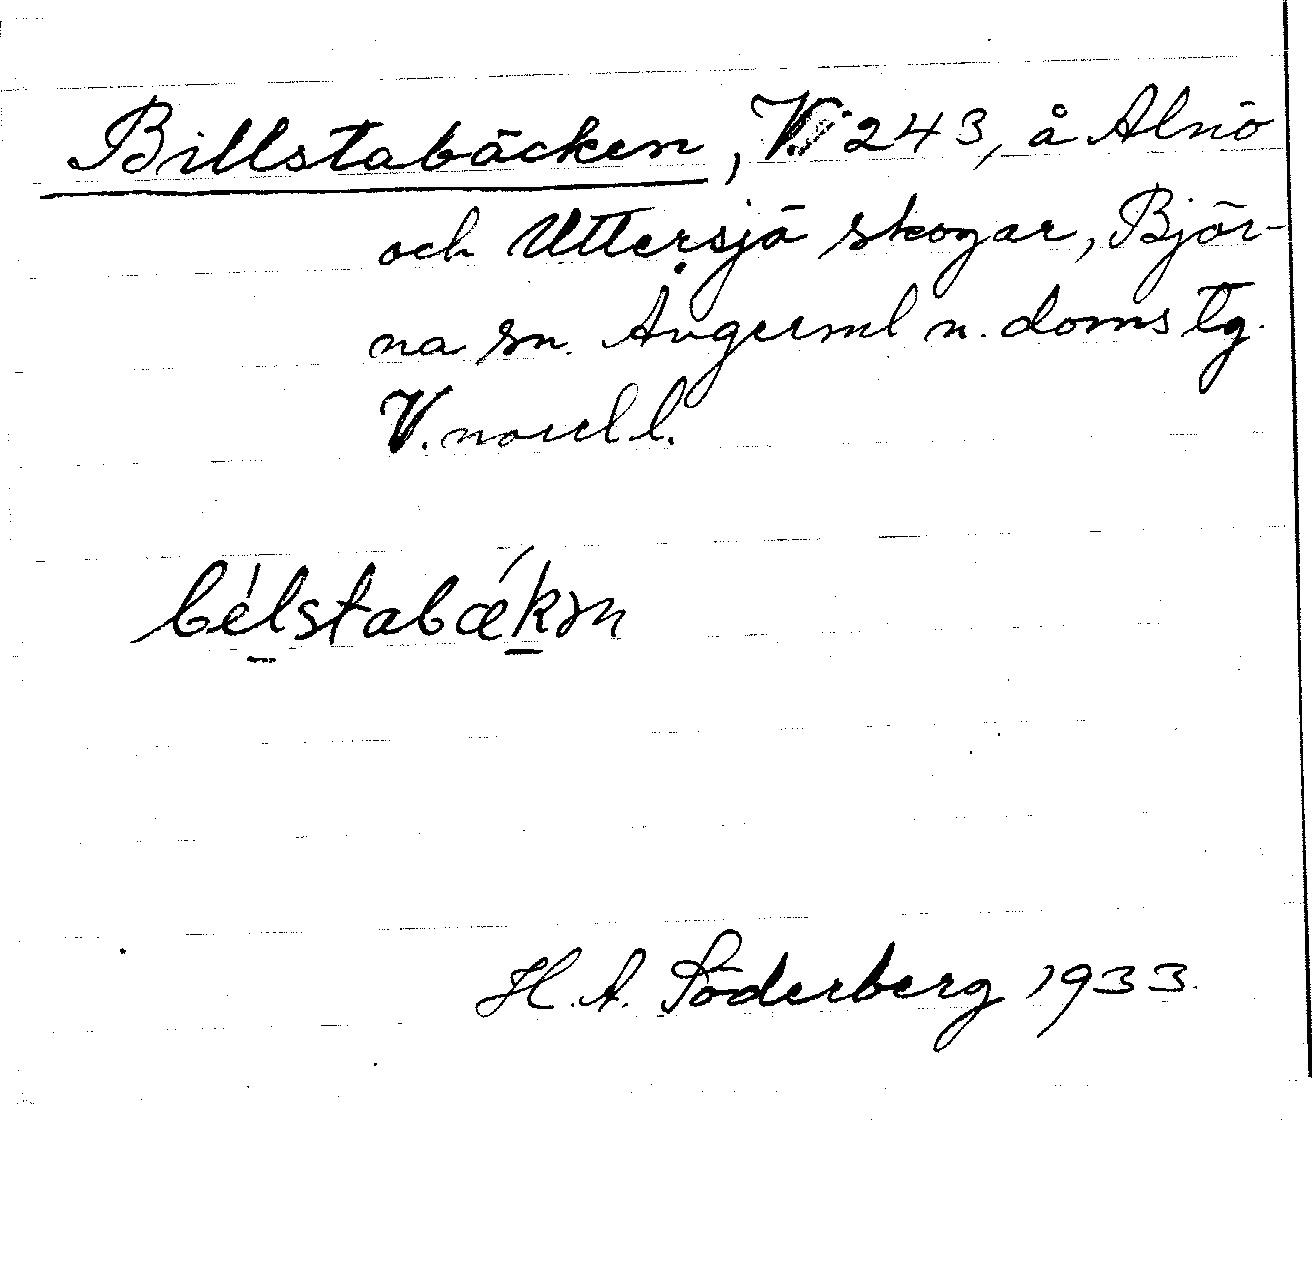 Billstabäcken, V. 243, å Alnö
och Uttersjö skogar, Björ-
na sn. Ångerml n. doms tg.
V. norrl l.
bélstabǽkən
H. A. Söderberg 1933.